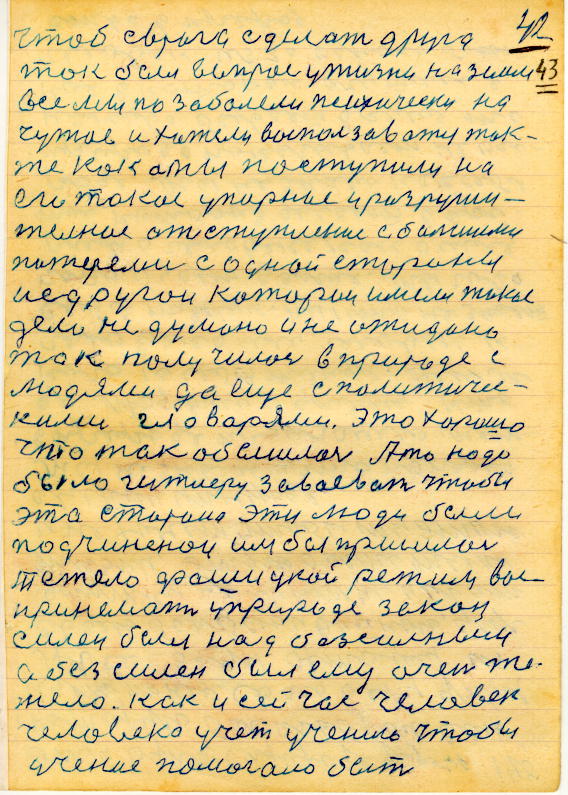 42
43
чтоб сврага сделат друга
так был вапрос ужизни на земли
все мы по заболели психически на
чужое и хатели воспользаватся так-
же как аты поступили на
его такое упорное и разруши-
телное отступление сбалшими
потерями с одной стораны
исдругой каторои имели такое
дело не думано и не ожидано
так получилос в природе с
людями да еще сполитиче-
кими гловарями. Это хорошо
что так обошлос Ато надо
было гитлеру заваеват чтобы
эта старана эти люди были
подчиненои им бы пришлос
тежело фашицкой режим вос-
принемат уприроде закон
силен был над безсилным
а безсилен был ему очен те-
жело. как и сейчас человек
человека учет учению чтобы
учение помогало быт